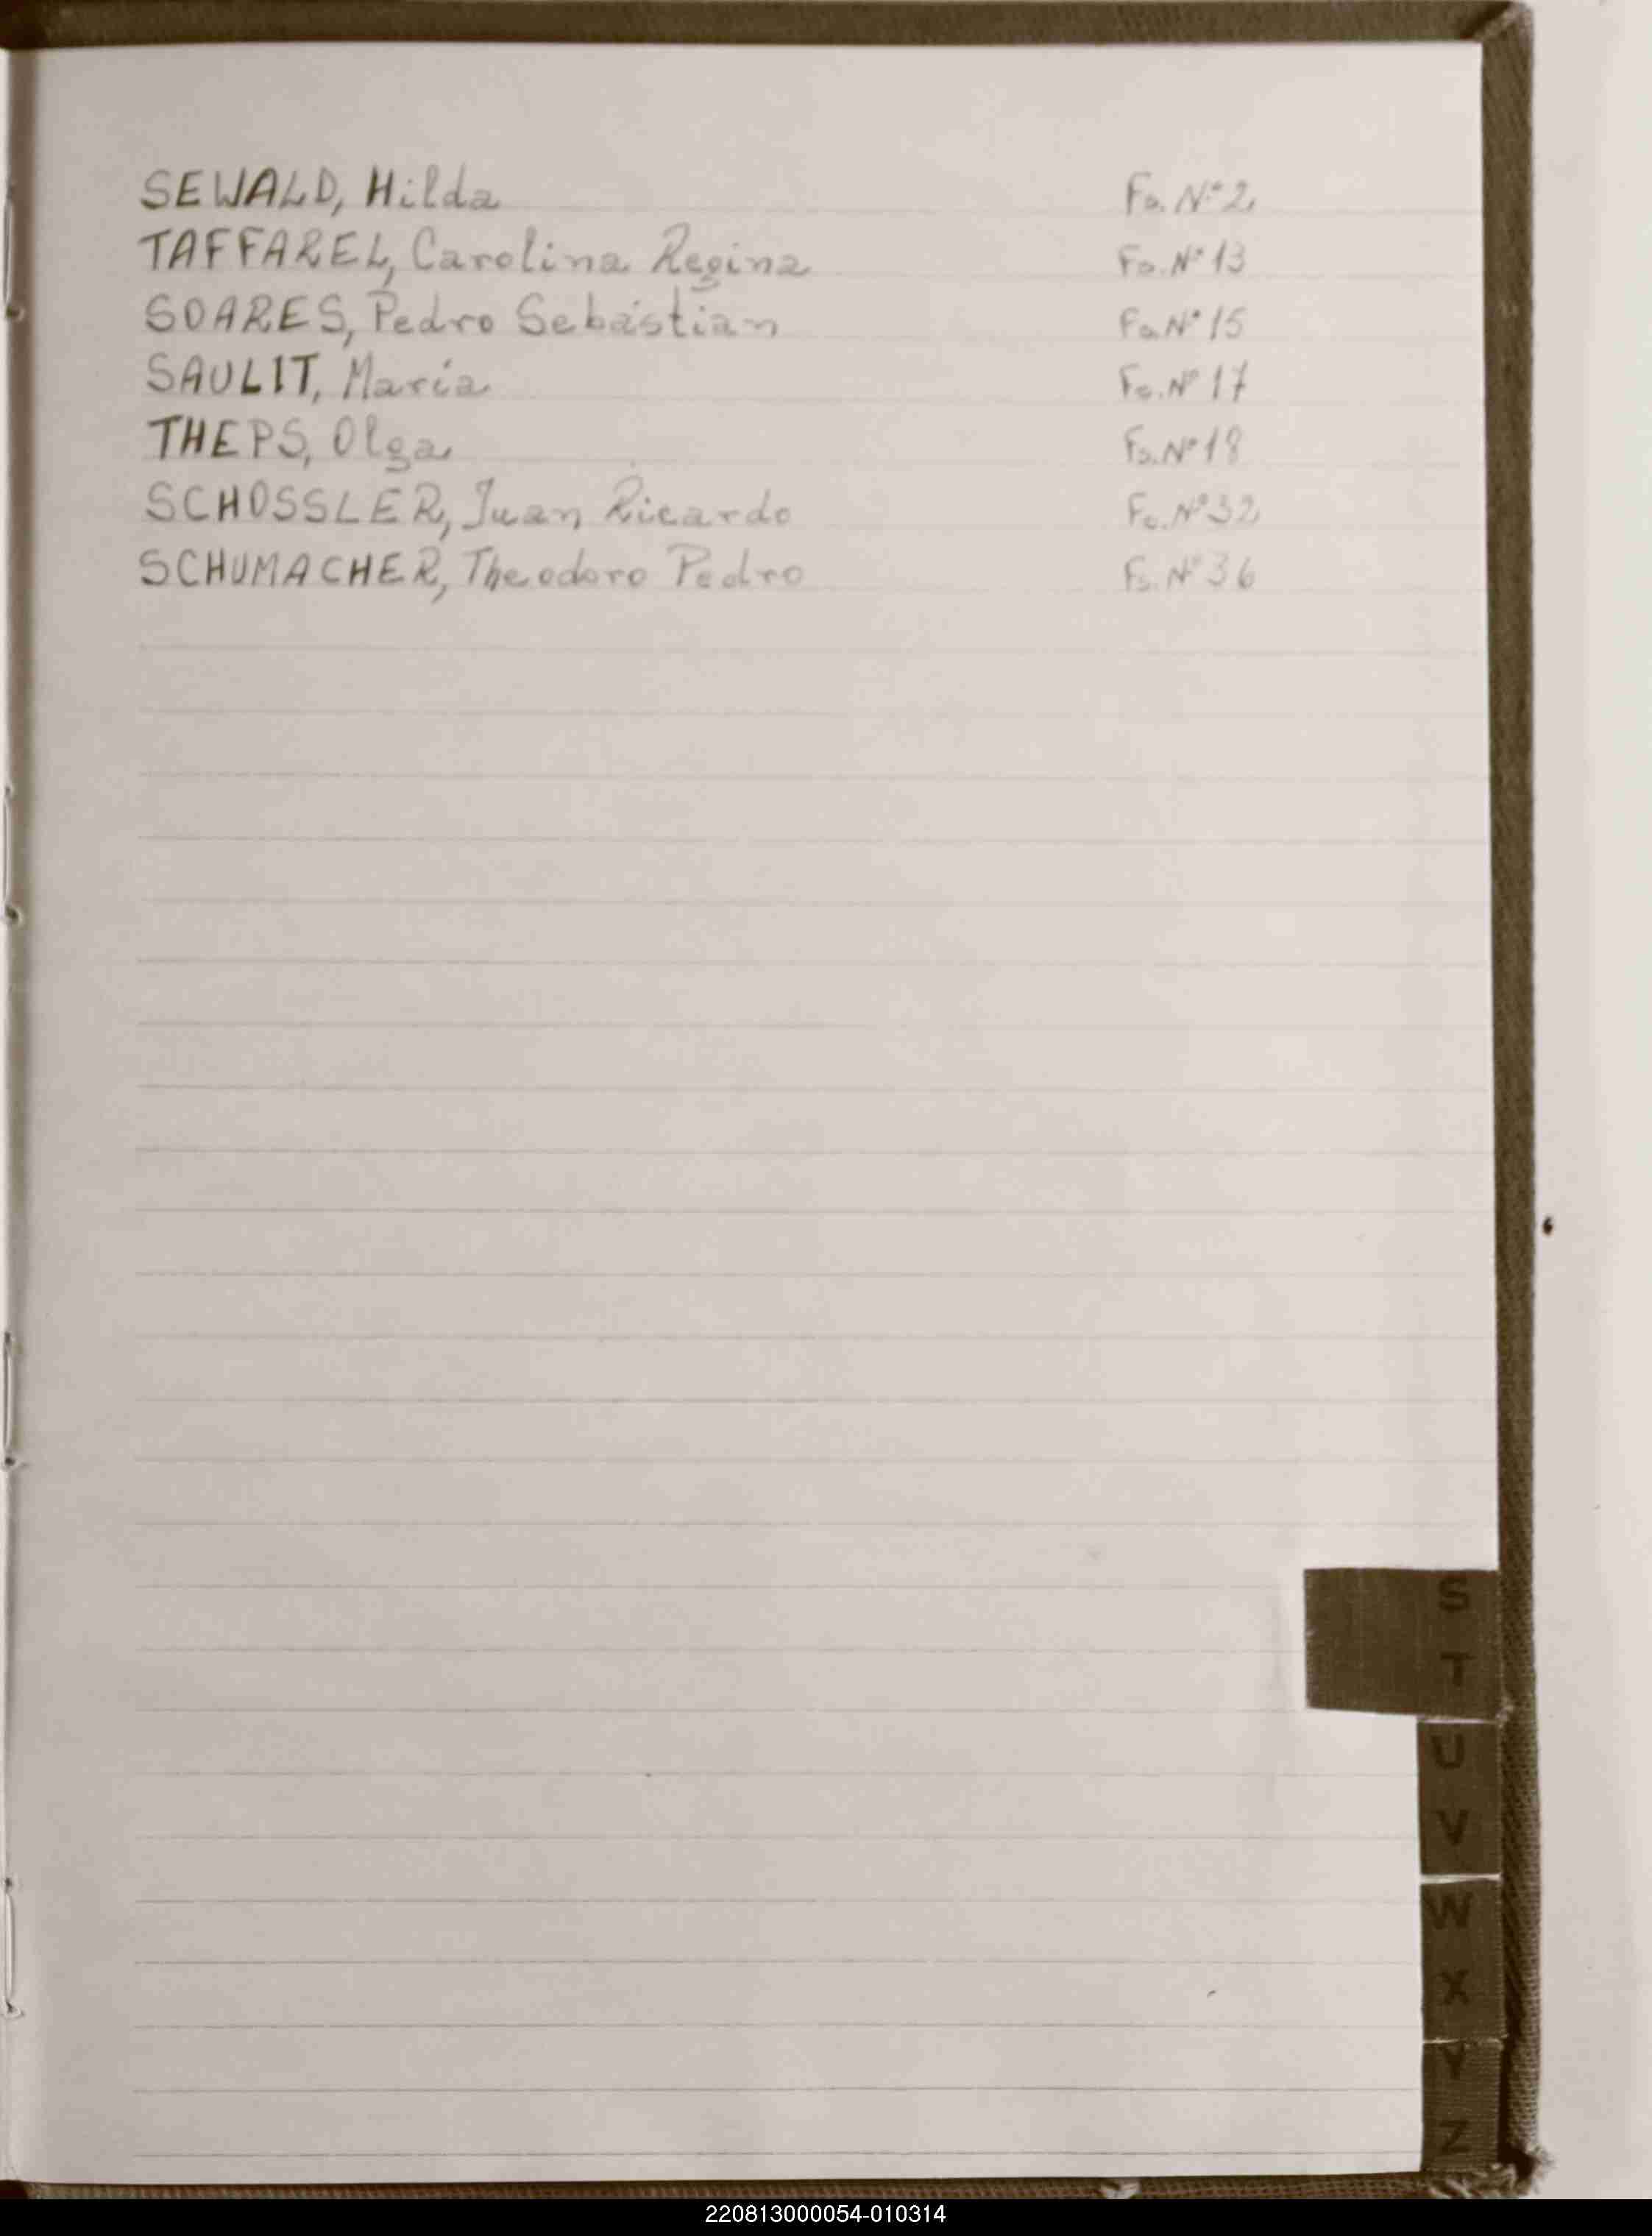 SEWALD, Hilda Fo. Nº 2
TAFFAREL, Carolina Regina Fo. Nº 13
SOARES, Pedro Sebástian Fo. Nº 15
SAULIT, María Fo. Nº 17
THEPS, Olga Fo. Nº 18
SCHOSSLER, Juan Ricardo Fo. Nº 32
SCHUMACHER, Theodoro Pedro Fo. Nº 36
S
T
U
V
W
X
Y
Z
220813000054-010314